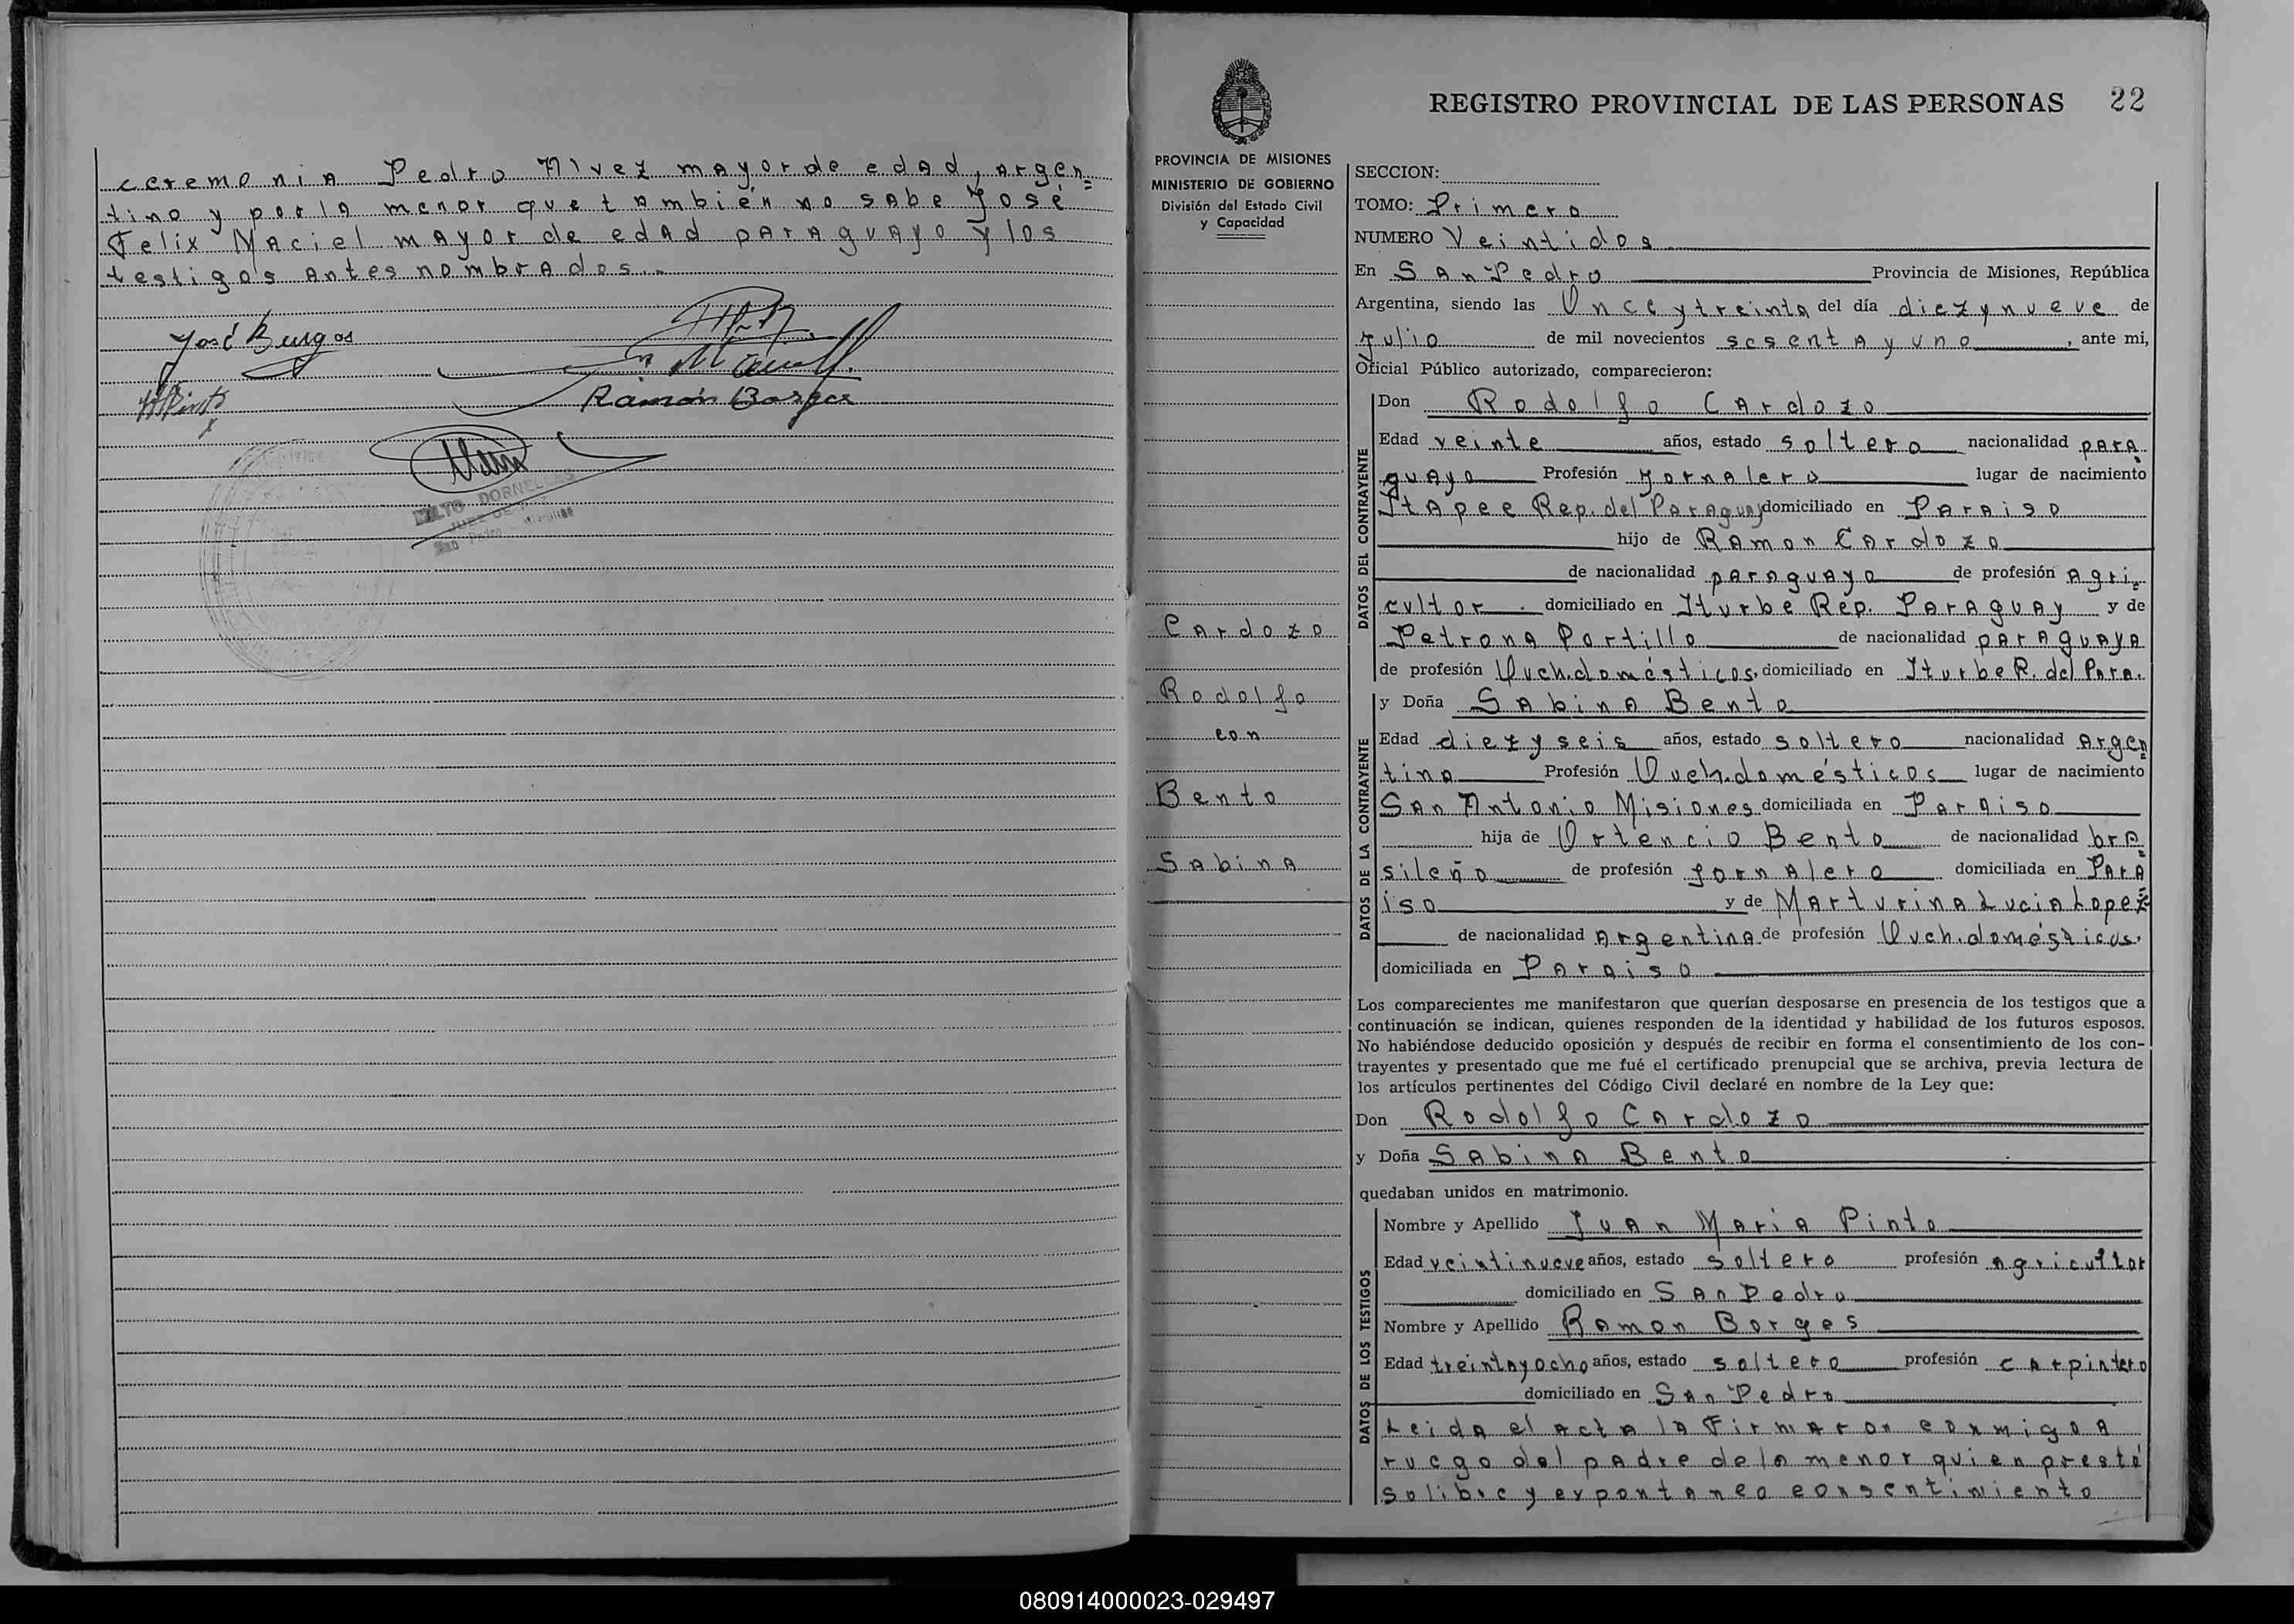 ceremonia Pedro Alvez mayor de edad, argen=
tino y por la menor que tambien no sabe José
Felix Maciel mayor de edad paraguayo y los
testigos antes nombrados.-
José Burgos
Ramón Borges
DORNELLES
JUEZ DE
San Pedro - Misiones
REGISTRO PROVINCIAL DE LAS PERSONAS 22
PROVINCIA DE MISIONES
MINISTERIO DE GOBIERNO
División del Estado Civil
y Capacidad
Cardozo
Rodolfo
con
Bento
Sabina
SECCION:
TOMO: Primero
NUMERO Veintidos
En San Pedro Provincia de Misiones, República
Argentina, siendo las Once y treinta del día diez y nueve de
julio de mil novecientos sesenta y uno, ante mi,
Oficial Público autorizado, comparecieron:
DATOS DEL CONTRAYENTE
Don Rodolfo Cardozo
Edad veinte años, estado soltero nacionalidad para
guayo Profesión jornalero lugar de nacimiento
Itapee Rep. del Paraguay domiciliado en Paraiso
hijo de Ramon Cardozo
de nacionalidad paraguayo de profesión agri=
cultor. domiciliado en Iturbe Rep. Paraguay y de
Petrona Portillo de nacionalidad paraguaya
de profesión Queh.domésticos, domiciliado en Iturbe R. del Para.
DATOS DE LA CONTRAYENTE
y Doña Sabina Bento
Edad diez y seis años, estado soltero nacionalidad Argen=
tina Profesión Queh.domésticos lugar de nacimiento
San Antonio Misiones domiciliada en Paraiso
hija de Ortencio Bento de nacionalidad bra=
sileño de profesión jornalero domiciliada en Para
iso y de Marturina Lucia Lopez
de nacionalidad Argentina de profesión Queh.domésticos.
domiciliada en Paraiso
Los comparecientes me manifestaron que querían desposarse en presencia de los testigos que a
continuación se indican, quienes responden de la identidad y habilidad de los futuros esposos.
No habiéndose deducido oposición y después de recibir en forma el consentimiento de los con-
trayentes y presentado que me fué el certificado prenupcial que se archiva, previa lectura de
los artículos pertinentes del Código Civil declaré en nombre de la Ley que:
Don Rodolfo Cardozo
y Doña Sabina Bento
quedaban unidos en matrimonio.
DATOS DE LOS TESTIGOS
Nombre y Apellido Juan Maria Pinto
Edad veintinueve años, estado soltero profesión agricultor
domiciliado en San Pedro
Nombre y Apellido Ramon Borges
Edad treinta y ocho años, estado soltero profesión carpintero
domiciliado en San Pedro
Leida el acta la firmaron conmigo a
ruego del padre de la menor quien prestó
su libre y expontaneo consentimiento
080914000023-029497